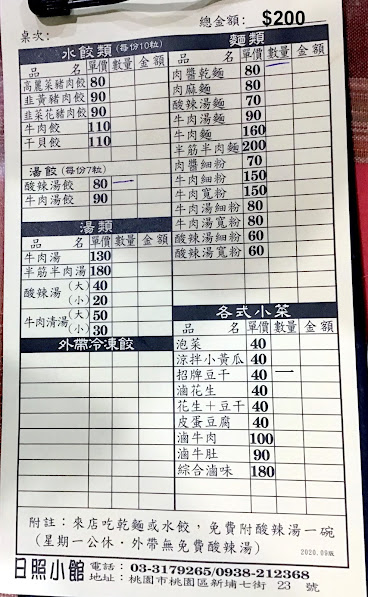 桌次:
總金額: $200
水餃類 (每份10粒)
品 名 單價 數量 金額
高麗菜豬肉餃 80
韭黃豬肉餃 90
韭菜花豬肉餃 90
牛肉餃 110
干貝餃 110
湯餃 (每份7粒)
酸辣湯餃 80 一
牛肉湯餃 90
湯類
品 名 單價 數量 金額
牛肉湯 130
半筋半肉湯 180
酸辣湯 (大) 40
(小) 20
牛肉清湯 (大) 50
(小) 30
外帶冷凍餃
麵類
品 名 單價 數量 金額
肉醬乾麵 80 一
肉麻麵 80
酸辣湯麵 70
牛肉湯麵 90
牛肉麵 160
半筋半肉麵 200
肉醬細粉 70
牛肉細粉 150
牛肉寬粉 150
牛肉湯細粉 80
牛肉湯寬粉 80
酸辣湯細粉 60
酸辣湯寬粉 60
各式小菜
品 名 單價 數量 金額
泡菜 40
涼拌小黃瓜 40
招牌豆干 40 一
滷花生 40
花生＋豆干 40
皮蛋豆腐 40
滷牛肉 100
滷牛肚 90
綜合滷味 180
附註：來店吃乾麵或水餃，免費附酸辣湯一碗
(星期一公休·外帶無免費酸辣湯) 2020.09版
日照小館 電話：03-3179265/0938-212368
地址：桃園市桃園區新埔七街 23 號